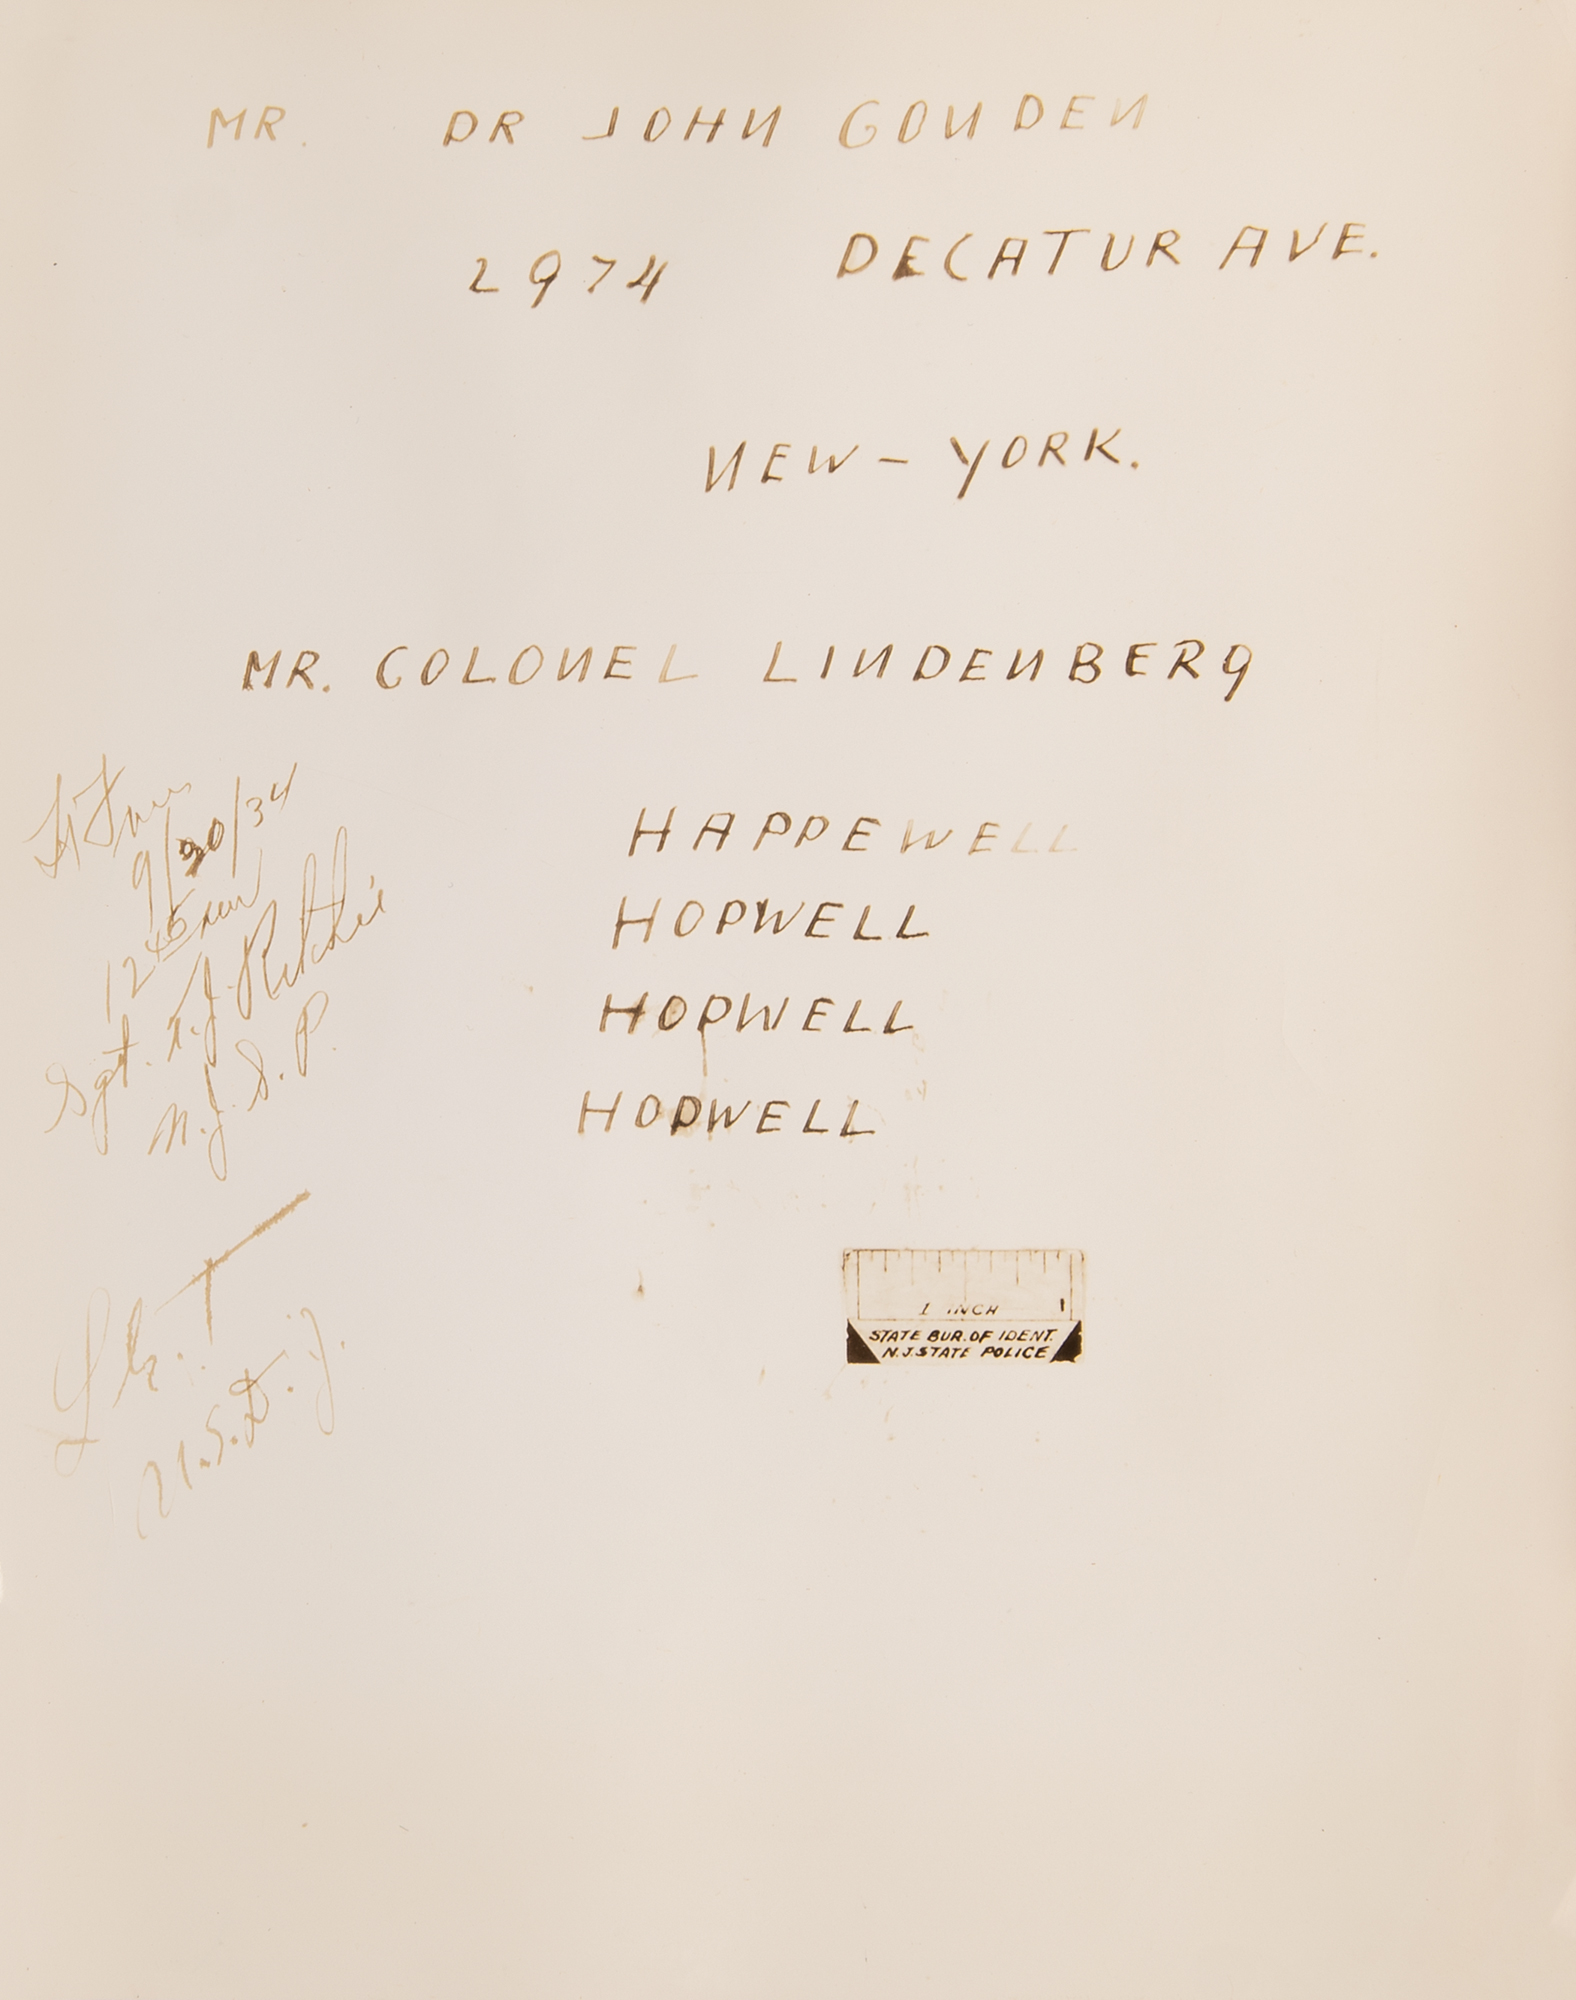 MR. DR JOHN GONDEN
2974 DECATUR AVE.
NEW - YORK.
MR. COLONEL LINDENBERG
HAPPEWELL
HOPWELL
HOPWELL
HOPWELL
9/20/34
12 45
Sgt. T. J. Ritchie
N. J. S. P.
T
1 INCH 1
STATE BUR. OF IDENT.
N.J. STATE POLICE